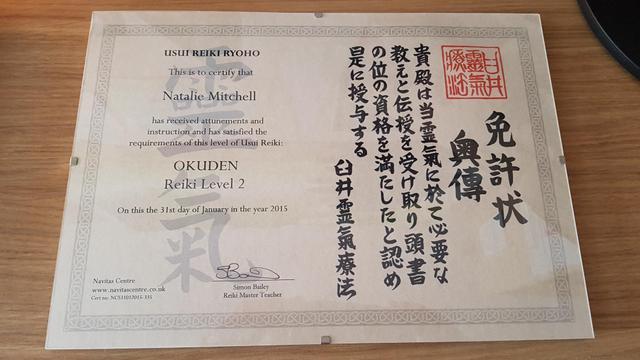 USUI REIKI RYOHO
This is to certify that
Natalie Mitchell
has received attunements and
instruction and has satisfied the
requirements of this level of Usui Reiki:
OKUDEN
Reiki Level 2
On this the 31st day of January in the year 2015
Navitas Centre
www.navitascentre.co.uk
Cert no: NCS31012015-335
Simon Bailey
Reiki Master Teacher
靈氣
臼井靈氣療法
免許状
奥傳
貴殿は当霊氣に於て必要な
教えと伝授を受け取り頭書
の位の資格を満たしたと認め
是に授与する
臼井霊氣療法